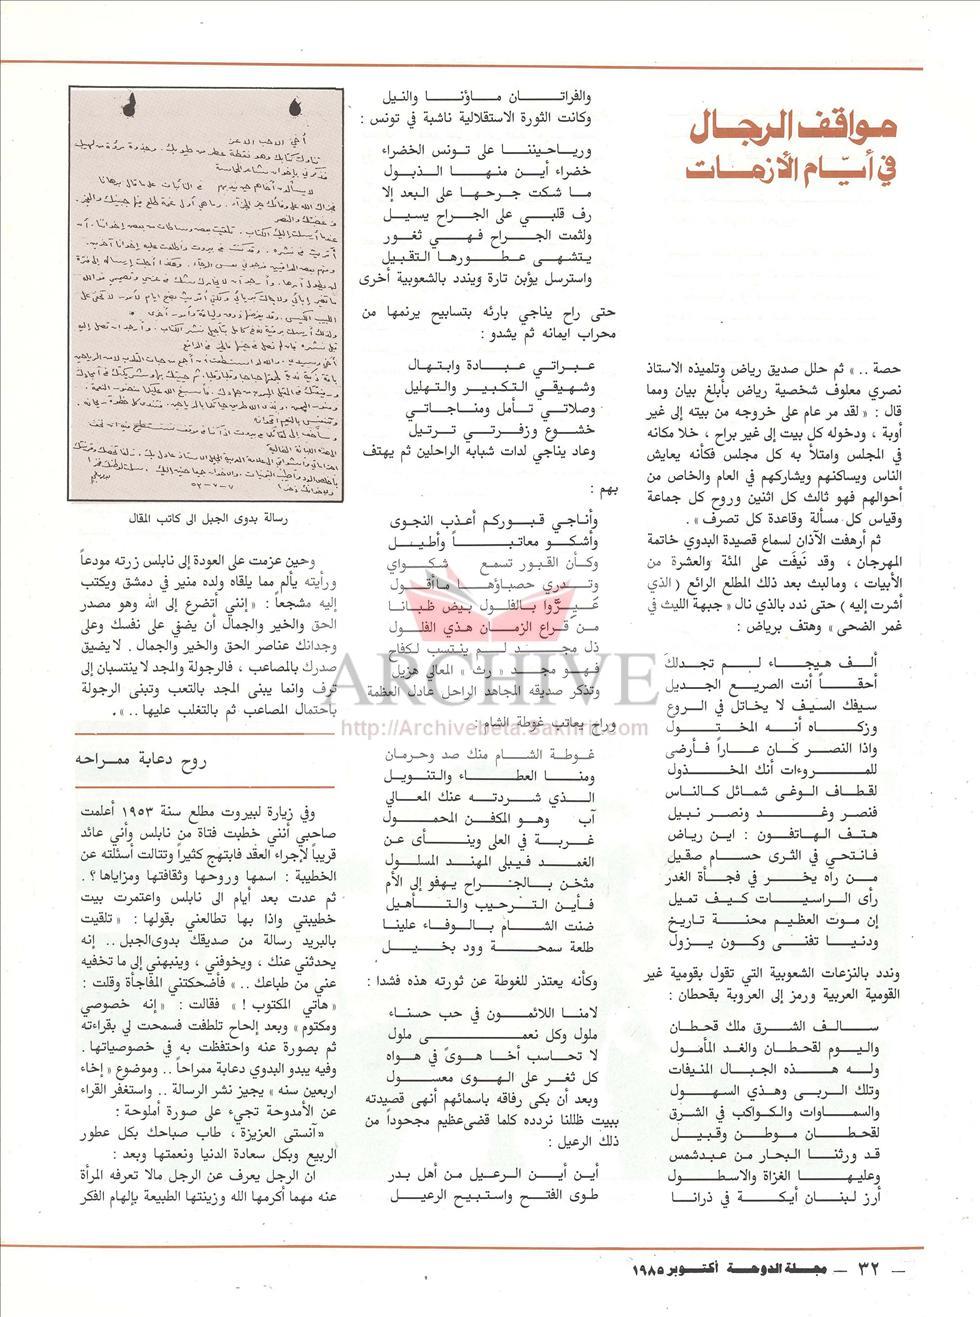 مواقف الرجال
في أيّام الأزمات
حصة .. » ثم حلل صديق رياض وتلميذه الاستاذ
نصري معلوف شخصية رياض بأبلغ بيان ومما
قال : « لقد مر عام على خروجه من بيته إلى غير
أوبة ، ودخوله كل بيت إلى غير براح ، خلا مكانه
في المجلس وامتلأ به كل مجلس فكأنه يعايش
الناس ويساكنهم ويشاركهم في العام والخاص من
أحوالهم فهو ثالث كل اثنين وروح كل جماعة
وقياس كل مسألة وقاعدة كل تصرف » .
ثم أرهفت الآذان لسماع قصيدة البدوي خاتمة
المهرجان ، وقد نَيفَت على المئة والعشرة من
الأبيات ، ومالبث بعد ذلك المطلع الرائع ( الذي
أشرت إليه ) حتى ندد بالذي نال « جبهة الليث في
غمر الضحى » وهتف برياض :
ألف هيجاء لم تجدلك
أحقاً أنت الصريع الجديل
سيفك السيف لا يخاتل في الروع
وزكاه أنه المختول
واذا النصر كان عاراً فأرضى
للمروءات أنك المخذول
لقطاف الوغى شمائل كالناس
فنصر وغد ونصر نبيل
هتف الهاتفون : اين رياض
فانتحي في الثرى حسام صقيل
من رآه يخر في فجأة الغدر
رأى الراسيات كيف تميل
إن موت العظيم محنة تاريخ
ودنيا تفنى وكون يزول
وندد بالنزعات الشعوبية التي تقول بقومية غير
القومية العربية ورمز إلى العروبة بقحطان :
سالف الشرق ملك قحطان
واليوم لقحطان والغد المأمول
وله هذه الجبال المنيفات
وتلك الربى وهذي السهول
والسماوات والكواكب في الشرق
لقحطان موطن وقبيل
قد ورثنا البحار من عبدشمس
وعليها الغزاة والاسطول
أرز لبنان أيكة في ذرانا
والفراتان ماؤنا والنيل
وكانت الثورة الاستقلالية ناشبة في تونس :
ورياحيننا على تونس الخضراء
خضراء أين منها الذبول
ما شكت جرحها على البعد إلا
رف قلبي على الجراح يسيل
ولثمت الجراح فهي ثغور
يتشهى عطورها التقبيل
واسترسل يؤبن تارة ويندد بالشعوبية أخرى
حتى راح يناجي بارئه بتسابيح يرنمها من
محراب ايمانه ثم يشدو :
عبراتي عبادة وابتهال
وشهيقي التكبير والتهليل
وصلاتي تأمل ومناجاتي
خشوع وزفرتي ترتيل
وعاد يناجي لدات شبابه الراحلين ثم يهتف
بهم :
وأناجي قبوركم أعذب النجوى
وأشكو معاتباً وأطيل
وكأن القبور تسمع شكواي
وتدري حصباؤها ماأقول
عَيِرَّوا بالفلول بيض ظبانا
من قراع الزمان هذي الفلول
ذل مجد لم ينتسب لكفاح
فهو مجد « رث » المعالي هزيل
وتذكر صديقه المجاهد الراحل عادل العظمة
وراح يعاتب غوطة الشام :
غوطة الشام منك صد وحرمان
ومنا العطاء والتنويل
الذي شردته عنك المعالي
آب وهو المكفن المحمول
غربة في العلى وينأى عن
الغمد فيبلى المهند المسلول
مثخن بالجراح يهفو إلى الأم
فأين الترحيب والتأهيل
ضنت الشام بالوفاء علينا
طلعة سمحة وود بخيل
وكأنه يعتذر للغوطة عن ثورته هذه فشدا :
لامنا اللائمون في حب حسناء
ملول وكل نعمى ملول
لا تحاسب أخا هوىً في هواه
كل ثغر على الهوى معسول
وبعد أن بكى رفاقه باسمائهم أنهى قصيدته
ببيت ظللنا نردده كلما قضى عظيم مجحوداً من
ذلك الرعيل :
أين أين الرعيل من أهل بدر
طوى الفتح واستبيح الرعيل
رسالة بدوى الجبل الى كاتب المقال
وحين عزمت على العودة إلى نابلس زرته مودعاً
ورأيته يألم مما يلقاه ولده منير في دمشق ويكتب
إليه مشجعاً : «إنني أتضرع إلى الله وهو مصدر
الحق والخير والجمال أن يضفي على نفسك وعلى
وجدانك عناصر الحق والخير والجمال . لايضيق
صدرك بالمصاعب ، فالرجولة والمجد لا ينتسبان إلى
ترف وانما يبنى المجد بالتعب وتبنى الرجولة
باحتمال المصاعب ثم بالتغلب عليها .. » .
روح دعابة ممراحه
وفي زيارة لبيروت مطلع سنة ١٩٥٣ أعلمت
صاحبي أنني خطبت فتاة من نابلس وأني عائد
قريباً لإجراء العقد فابتهج كثيراً وتتالت أسئلته عن
الخطيبة : اسمها وروحها وثقافتها ومزاياها ؟ .
ثم عدت بعد أيام الى نابلس واعتمرت بيت
خطيبتي واذا بها تطالعني بقولها : «تلقيت
بالبريد رسالة من صديقك بدوى الجبل .. إنه
يحدثني عنك ، ويخوفني ، وينبهني إلى ما تخفيه
عني من طباعك .. » فأضحكتني المفاجأة وقلت :
« هاتي المكتوب ! » فقالت : «إنه خصوصي
ومكتوم » وبعد إلحاح تلطفت فسمحت لي بقراءته
ثم بصورة عنه واحتفظت به في خصوصياتها .
وفيه يبدو البدوي دعابة ممراحاً .. وموضوع « إخاء
اربعين سنه » يجيز نشر الرسالة .. واستغفر القراء
عن الأمدوحة تجيء على صورة أملوحة :
«آنستى العزيزة ، طاب صباحك بكل عطور
الربيع وبكل سعادة الدنيا ونعمتها وبعد :
ان الرجل يعرف عن الرجل مالا تعرفه المرأة
عنه مهما أكرمها الله وزينتها الطبيعة بإلهام الفكر
ARCHIVE
http://Archivebeta.Sakhrit.com
— ٣٢ — مجلة الدوحة أكتوبر ١٩٨٥